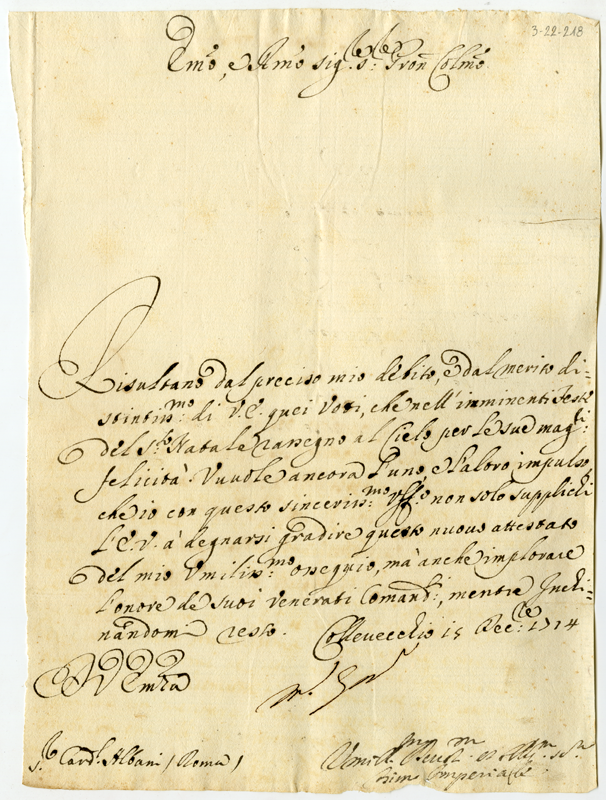 3-22-218
Em̃o, e Rm̃o Sig.re s.re Pron Colm̃o
Risultano dal preciso mio debito, e dal merito di=
stintiss:mo di V.E. quei Voti, che nell'imminenti Feste
del S.to Natale rassegno al Cielo per le sue magg:ri
felicità. Vuole ancora l'uno, e l'altro impulso,
che io con questo sinceriss:mo uff.o non solo supplichi
l'E.V. à degnarsi gradire questo nuovo attestato
del mio Umiliss:mo ossequio, mà anche implorare
l'onore de suoi venerati Comandi:, mentre Inchi=
nandomi resto. Collevecchio 15 Dec:re 1714
Di V Em̃za
S.r Card.l Albani / Roma /
Imperiale